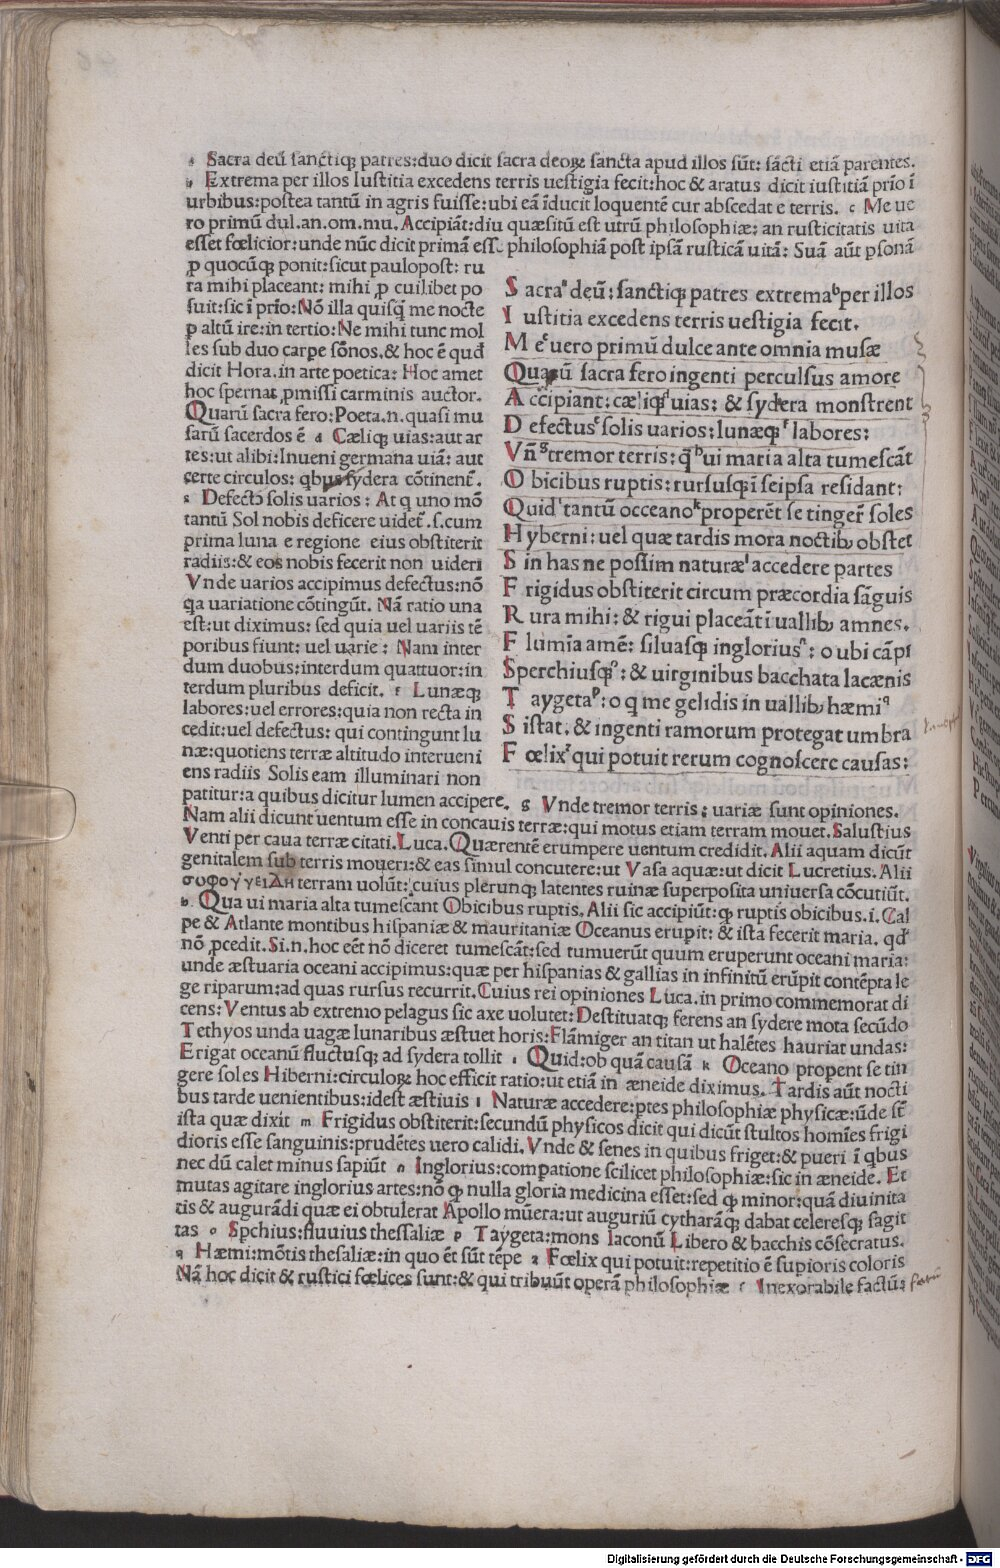 a Sacra deũ sanctiqʒ patres:duo dicit sacra deoꝝ sancta apud illos sũt: sãcti etiã parentes.
b Extrema per illos Iustitia excedens terris uestigia fecit:hoc & aratus dicit iustitiã prĩo ĩ
urbibus:postea tantũ in agris fuisse:ubi eã ĩducit loquentẽ cur abscedat e terris. c Me ue
ro primũ dul.an.om.mu. Accipiãt:diu quæsitũ est utrũ philosophiæ: an rusticitatis uita
esset fœlicior:unde nũc dicit primã esse philosophiã post ipsã rusticã uitã: Suã aũt psonã
ꝓ quocũqʒ ponit:sicut paulopost: ru
ra mihi placeant: mihi ꝓ cuilibet po
suit:sic ĩ prĩo:Nõ illa quisq̃ me nocte
ꝑ altũ ire:in tertio:Ne mihi tunc mol
les sub duo carpe sõnos.& hoc ẽ qud̃
dicit Hora.in arte poetica: Hoc amet
hoc spernat ꝓmissi carminis auctor.
Quarũ sacra fero:Poeta.n.quasi mu
sarũ sacerdos ẽ d Cæliqʒ uias:aut ar
tes:ut alibi:Inueni germana uiã: aut
certe circulos: qbus sydera cõtinent̃.
e Defectꝰ solis uarios: At q uno mõ
tantũ Sol nobis deficere uidet̃.s.cum
prima luna e regione eius obstiterit
radiis:& eos nobis fecerit non uideri
Vnde uarios accipimus defectus:nõ
qa uariatione cõtingũt. Nã ratio una
est:ut diximus: sed quia uel uariis tẽ
poribus fiunt: uel uarie: Nam inter
dum duobus:interdum quattuor:in
terdum pluribus deficit. f Lunæqʒ
labores:uel errores:quia non recta in
cedit:uel defectus: qui contingunt lu
næ:quotiens terræ altitudo interueni
ens radiis Solis eam illuminari non
S acraᵃ deũ: sanctiqʒ patres extremaᵇper illos
I ustitia excedens terris uestigia fecit.
M eᶜuero primũ dulce ante omnia musæ
Quarũ sacra fero ingenti perculsus amore
A ccipiant: cæliqʒᵈuias: & sydera monstrent
D efectusᵉsolis uarios:lunæqʒᶠ labores:
Vñᵍtremor terris: qʰui maria alta tumescãt
O bicibus ruptis: rursusqʒ ĩ seipsa residant:
Quidⁱtantũ occeanoᵏproperẽt se tinger̃ soles
H yberni: uel quæ tardis mora noctibꝰ obstet
S in has ne possim naturæˡ accedere partes
F rigidus obstiterit circum præcordia sãguis
R ura mihi: & rigui placeãt ĩ uallibꝰ amnes.
F lumĩa amẽ: siluasqʒ ingloriusⁿ: o ubi cãpi
Sperchiusqʒᵒ: & uirginibus bacchata lacænis
T aygetaᵖ: o q me gelidis in uallibꝰ hæmi
S istat. & ingenti ramorum protegat umbra
F œlixʳqui potuit rerum cognoscere causas:
patitur:a quibus dicitur lumen accipere. g Vnde tremor terris: uariæ sunt opiniones.
Nam alii dicunt uentum esse in concauis terræ:qui motus etiam terram mouet.Salustius
Venti per caua terræ citati.Luca.Quærentẽ erumpere uentum credidit. Alii aquam dicũt
genitalem sub terris moueri:& eas simul concutere:ut Vasa aquæ:ut dicit Lucretius. Alii
terram uolũt: cuius plerunqʒ latentes ruinæ superposita uniuersa cõcutiũt.
h. Qua ui maria alta tumescant Obicibus ruptis. Alii sic accipiũt:qʒ ruptis obicibus.i.Cal
pe & Atlante montibus hispaniæ & mauritaniæ Oceanus erupit: & ista fecerit maria. qd̃
nõ ꝓcedit.Si.n.hoc eẽt nõ diceret tumescãt:sed tumuerũt quum eruperunt oceani maria:
unde æstuaria oceani accipimus:quæ per hispanias & gallias in infinitũ erũpit contẽpta le
ge riparum:ad quas rursus recurrit.Cuius rei opiniones Luca.in primo commemorat di
cens:Ventus ab extremo pelagus sic axe uolutet:Destituatqʒ ferens an sydere mota secũdo
Tethyos unda uagæ lunaribus æstuet horis:Flãmiger an titan ut halẽtes hauriat undas:
Erigat oceanũ fluctusqʒ ad sydera tollit i Quid:ob quã causã k Oceano propent se tin
gere soles Hiberni:circuloꝝ hoc efficit ratio:ut etiã in æneide diximus. Tardis aũt nocti
bus tarde uenientibus:idest æstiuis l Naturæ accedere:ptes philosophiæ physicæ:ũde st̃
ista quæ dixit m Frigidus obstiterit:secundũ physicos dicit qui dicũt stultos homĩes frigi
dioris esse sanguinis:prudẽtes uero calidi.Vnde & senes in quibus friget:& pueri ĩ qbus
nec dũ calet minus sapiũt n Inglorius:compatione scilicet philosophiæ:sic in æneide. Et
mutas agitare inglorius artes:nõ qʒ nulla gloria medicina esset:sed qʒ minor:quã diuinita
tis & augurãdi quæ ei obtulerat Apollo mũera:ut auguriũ cytharãqʒ dabat celeresqʒ sagit
tas o Spchius:fluuius thessaliæ p Taygeta:mons laconũ Libero & bacchis cõsecratus.
q Hæmi:mõtis thesaliæ:in quo ẽt sũt tẽpe r Fœlix qui potuit:repetitio ẽ supioris coloris
Nã hoc dicit & rustici fœlices sunt:& qui tribuũt operã philosophiæ s Inexorabile factũ:
Digitalisierung gefördert durch die Deutsche Forschungsgemeinschaft - DFG